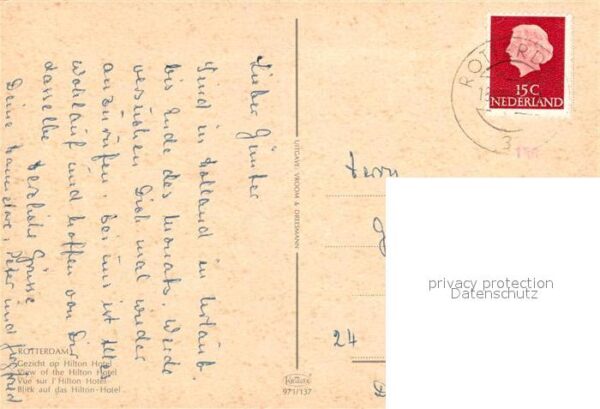 Lieber Günter
Sind in Holland in Urlaub.
bis Ende des Monats. Werde
versuchen Dich mal wieder
anzurufen. Bei uns ist alles
wohlauf und hoffen von Dir
dasselbe. Herzliche Grüsse
Deine Hannelore, Peter und
ROTTERDAM
Gezicht op Hilton Hotel
View of the Hilton Hotel
Vue sur l'Hilton Hotel
Blick auf das Hilton-Hotel
UITGAVE: VROOM & DREESMANN
971/137
ROTTERD
15C
NEDERLAND
Herrn
24
privacy protection
Datenschutz